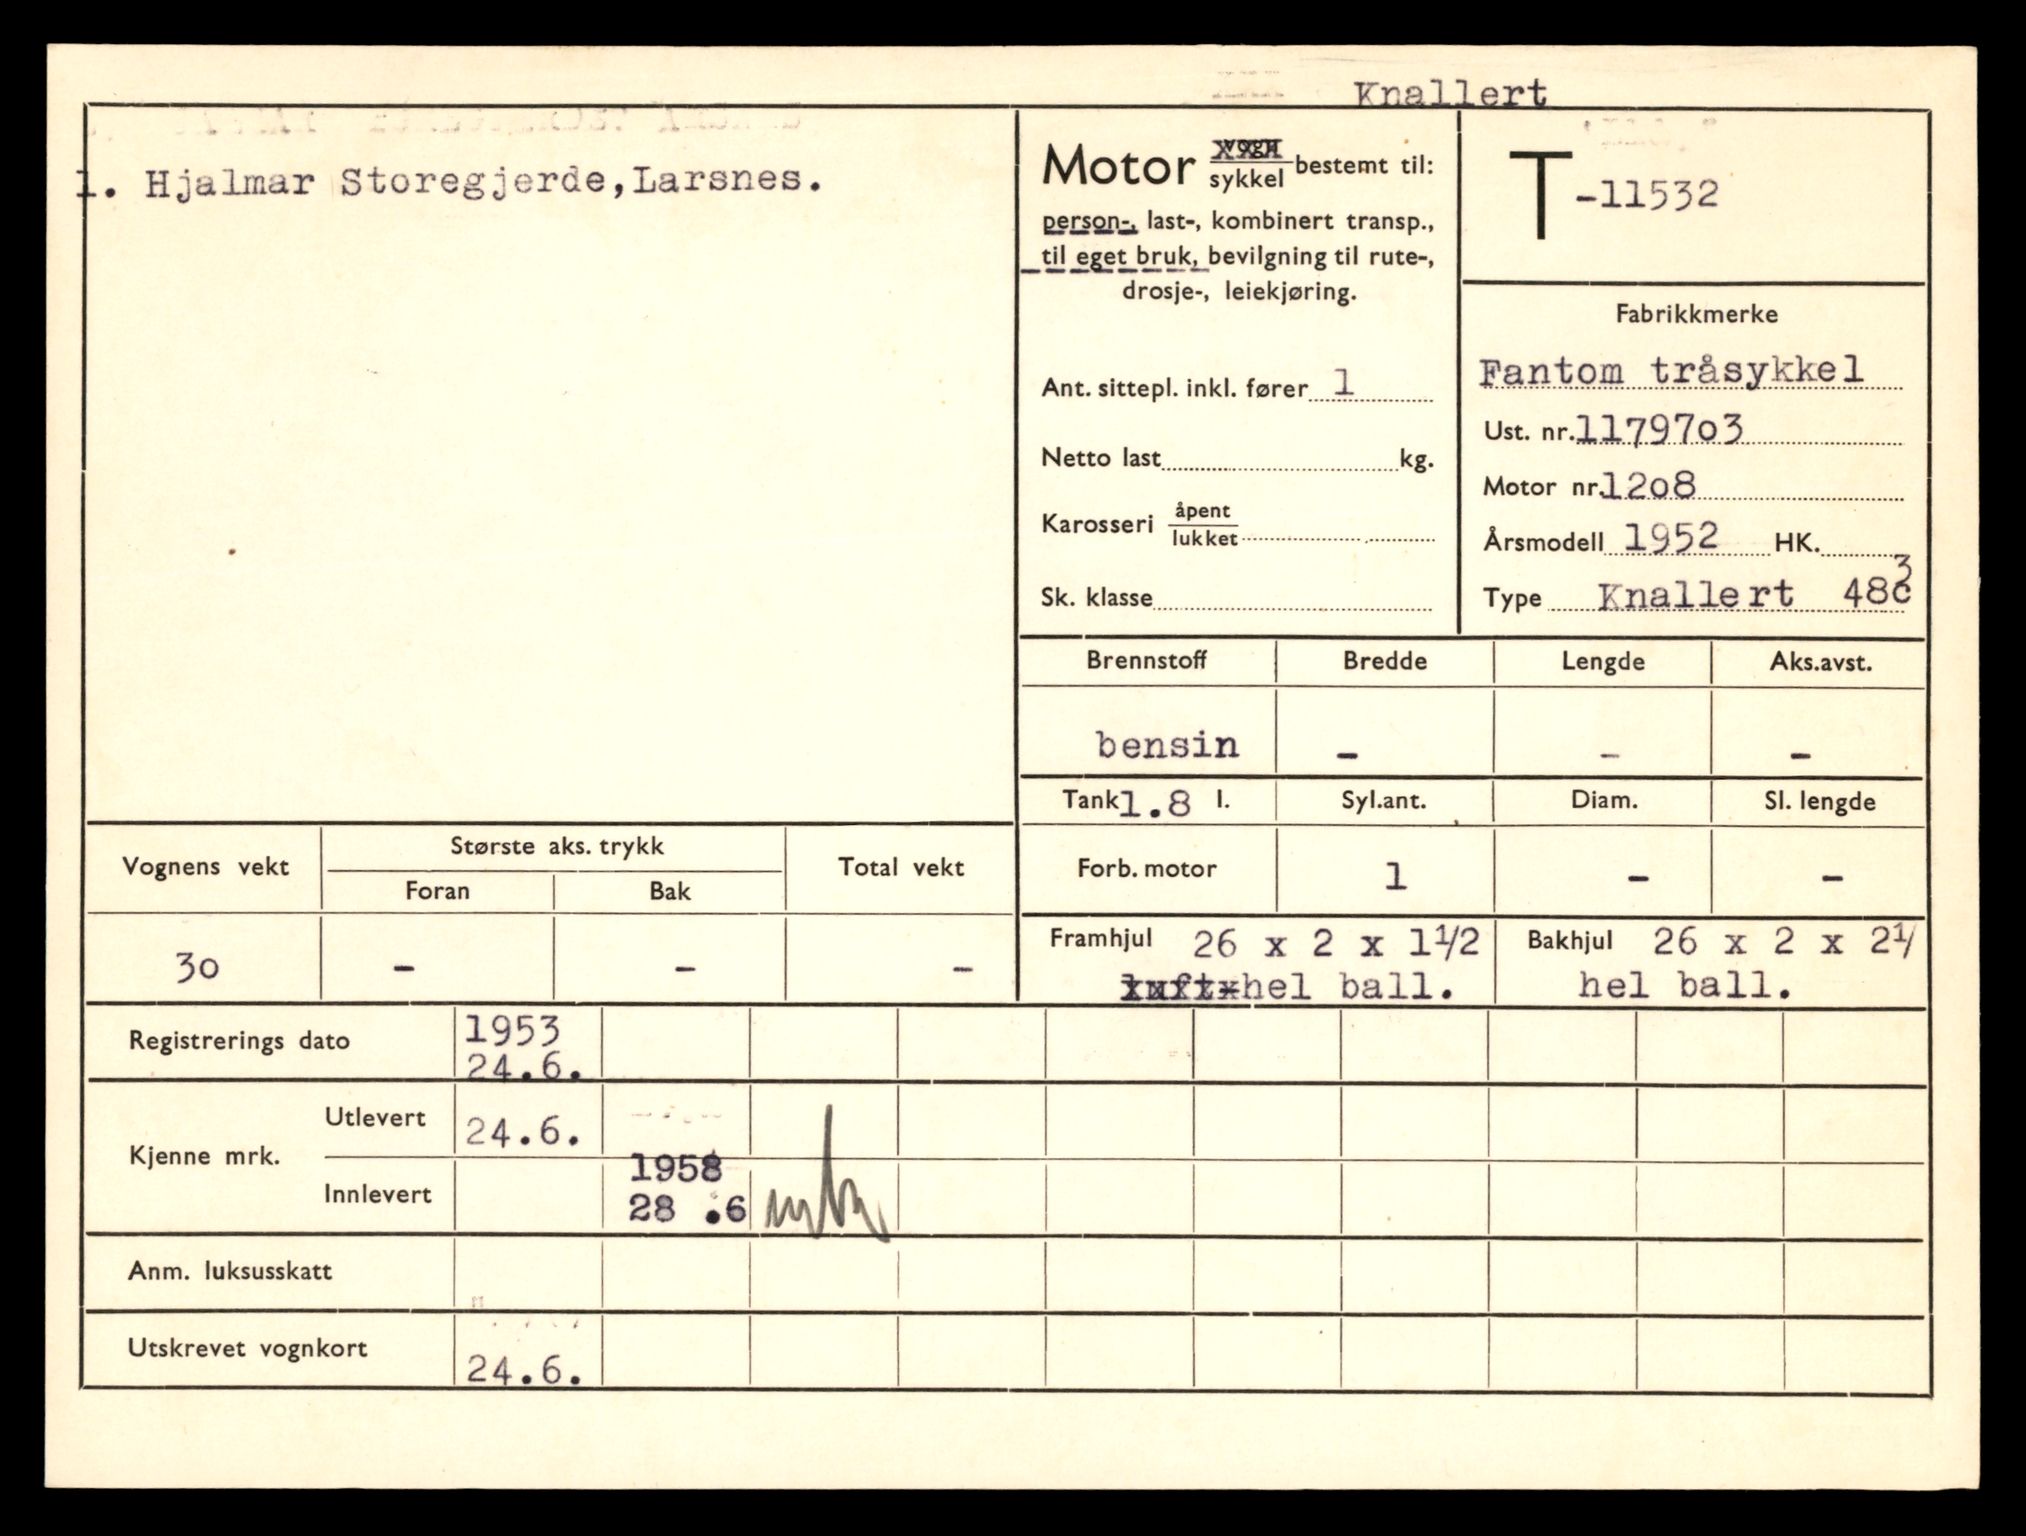 Knallert
1. Hjalmar Storegjerde,Larsnes.
Motor vogn
sykkel bestemt til:
person-, last-, kombinert transp.,
til eget bruk, bevilgning til rute-,
drosje-, leiekjøring.
Ant. sittepl. inkl. fører 1
Netto last kg.
Karosseri åpent
lukket
Sk. klasse
T-11532
Fabrikkmerke
Fantom tråsykkel
Ust. nr. 11797o3
Motor nr. 12o8
Årsmodell 1952 HK.
Type Knallert 48c3
Brennstoff Bredde Lengde Aks.avst.
bensin - - -
Tank 1.8 l. Syl.ant. Diam. Sl. lengde
Forb. motor 1 - -
Framhjul 26 x 2 x 1½ Bakhjul 26 x 2 x 21/
luft hel ball. hel ball.
Vognens vekt Største aks. trykk Total vekt
Foran Bak
3o - - -
Registrerings dato 1953
24.6.
Kjenne mrk. Utlevert 24.6.
Innlevert 1958
28 .6
Anm. luksusskatt
Utskrevet vognkort 24.6.